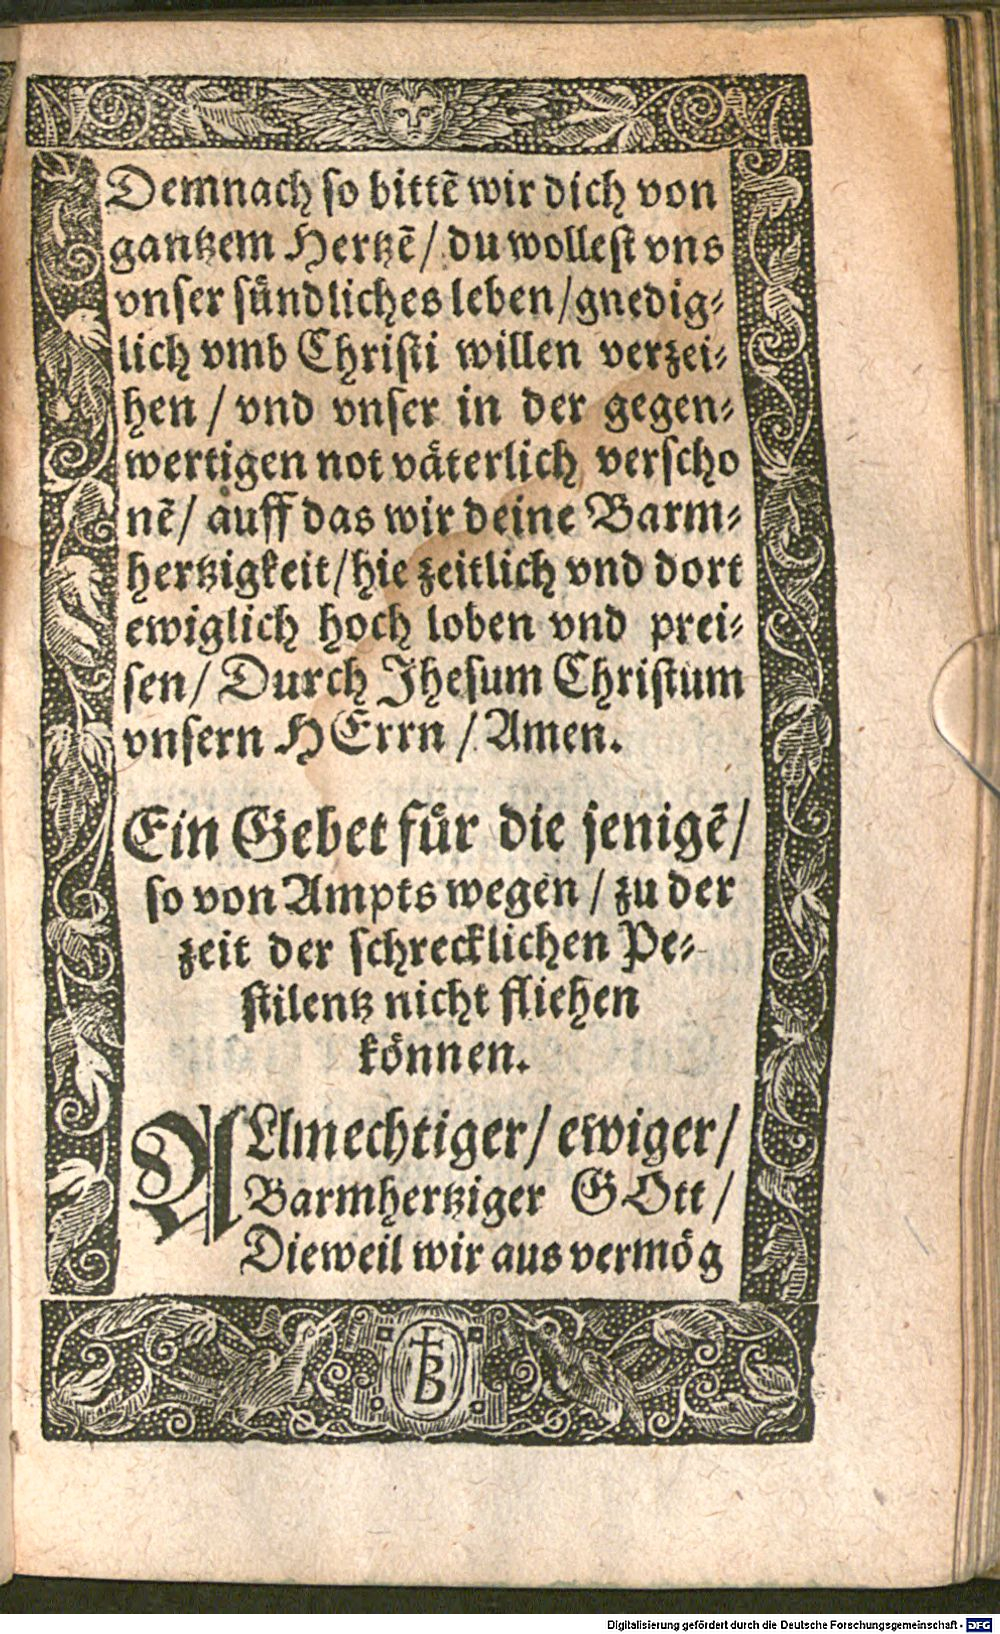 Demnach so bittẽ wir dich von
gantzem Hertzẽ/ du wollest vns
vnser sündliches leben/gnedig⸗
lich vmb Christi willen verzei⸗
hen / vnd vnser in der gegen⸗
wertigen not väterlich verscho
nẽ/ auff das wir deine Barm⸗
hertzigkeit/hie zeitlich vnd dort
ewiglich hoch loben vnd prei⸗
sen/ Durch Jhesum Christum
vnsern HErrn / Amen.
Ein Gebet für die jenigẽ/
so von Ampts wegen / zu der
zeit der schrecklichen Pe⸗
stilentz nicht fliehen
können.
ALlmechtiger/ ewiger/
Barmhertziger GOtt /
Dieweil wir aus vermög
B
Digitalisierung gefördert durch die Deutsche Forschungsgemeinschaft - DFG